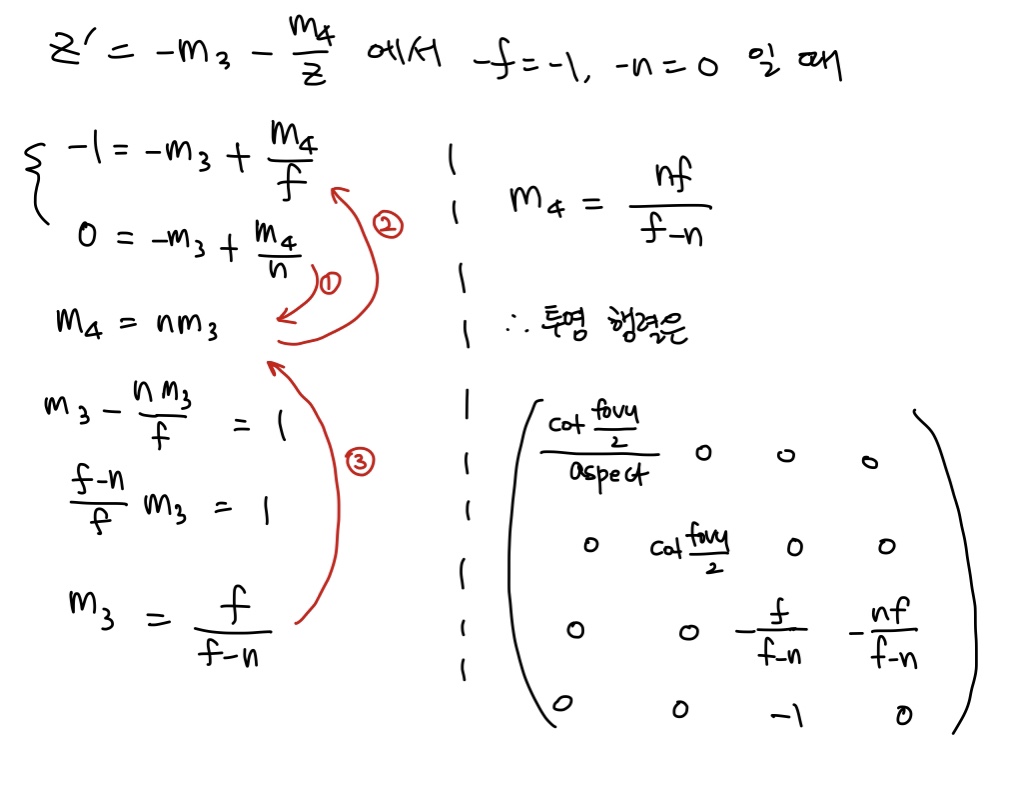 z' = -m₃ - m₄/z 에서 -f = -1, -n = 0 일 때
-1 = -m₃ + m₄/f
0 = -m₃ + m₄/n
①
②
m₄ = nm₃
m₃ - nm₃/f = 1
③
(f-n)/f m₃ = 1
m₃ = f/(f-n)
m₄ = nf/(f-n)
∴ 투영 행렬은
(cot fovy/2)/aspect 0 0 0
0 cot fovy/2 0 0
0 0 -f/(f-n) -nf/(f-n)
0 0 -1 0